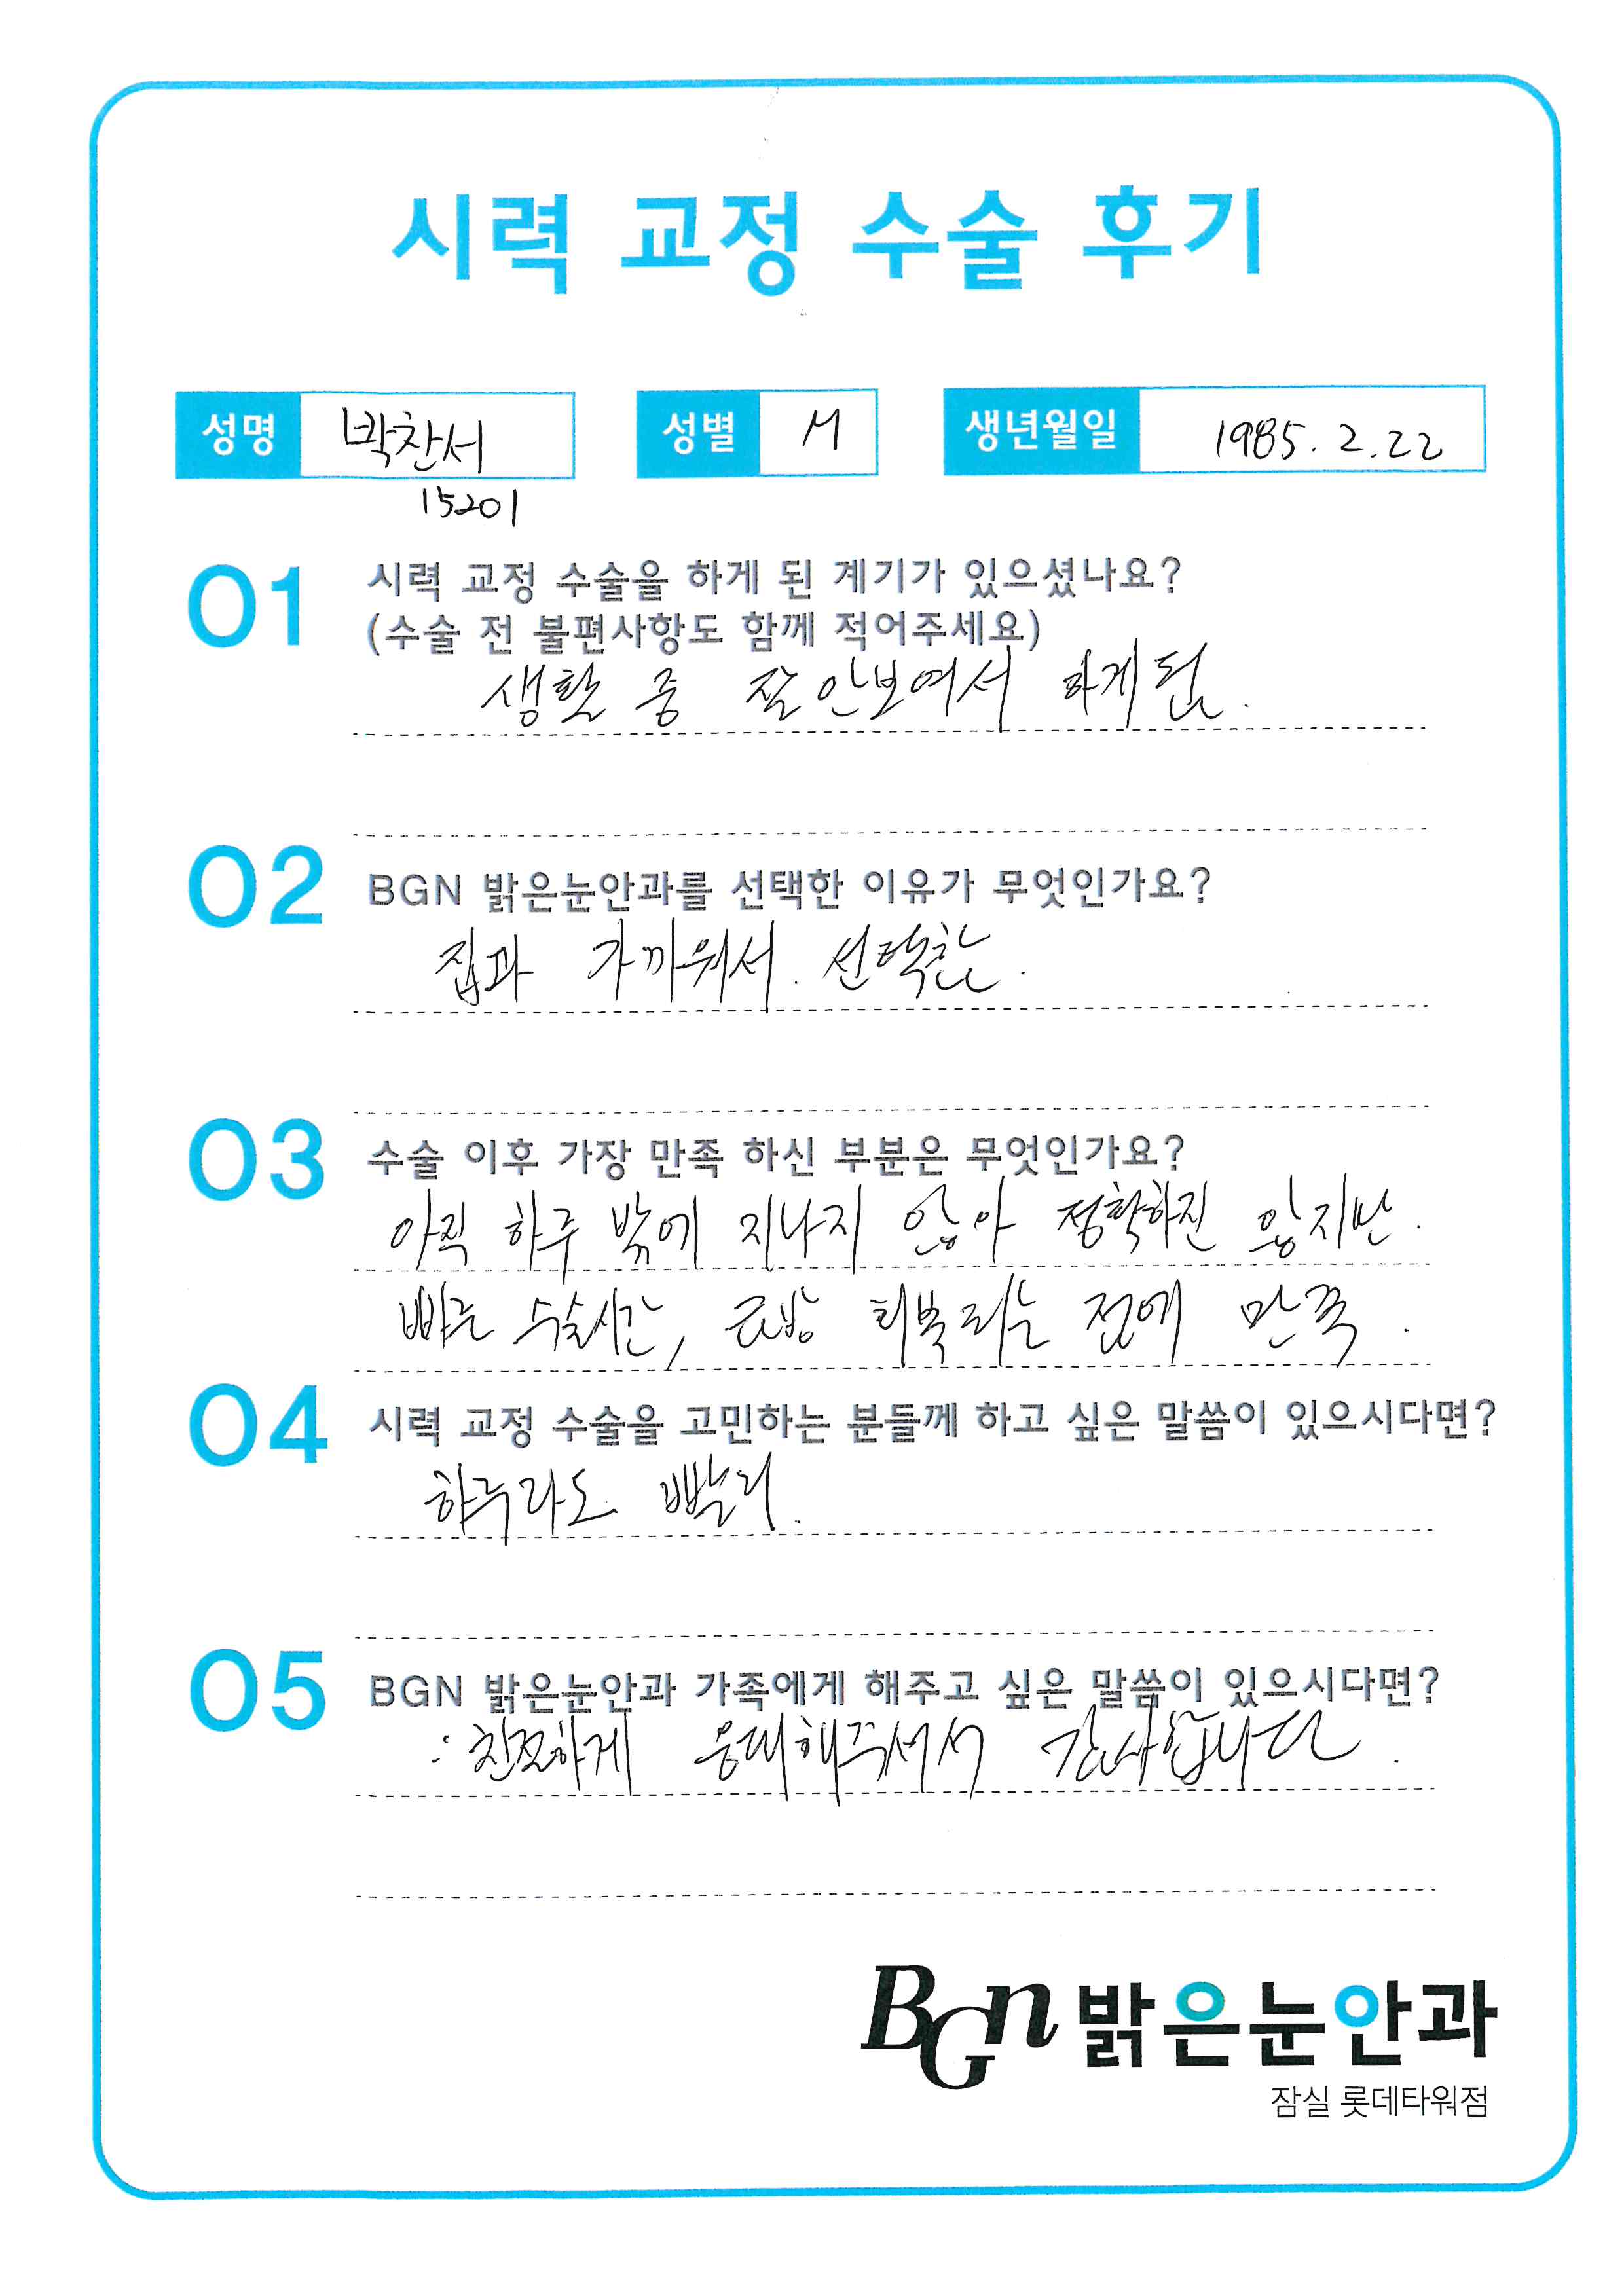 시력 교정 수술 후기
성명 박찬서 성별 M 생년월일 1985. 2. 22
15201
01 시력 교정 수술을 하게 된 계기가 있으셨나요?
(수술 전 불편사항도 함께 적어주세요)
생활 중 잘 안보여서 하게됨.
02 BGN 밝은눈안과를 선택한 이유가 무엇인가요?
집과 가까워서. 선택함.
03 수술 이후 가장 만족 하신 부분은 무엇인가요?
아직 하루 밖에 지나지 않아 정확하진 않지만.
빠른 수술시간, 금방 회복되는 점에 만족.
04 시력 교정 수술을 고민하는 분들께 하고 싶은 말씀이 있으시다면?
하루라도 빨리.
05 BGN 밝은눈안과 가족에게 해주고 싶은 말씀이 있으시다면?
: 친절하게 응대해주셔서 감사합니다.
BGn 밝은눈안과
잠실 롯데타워점